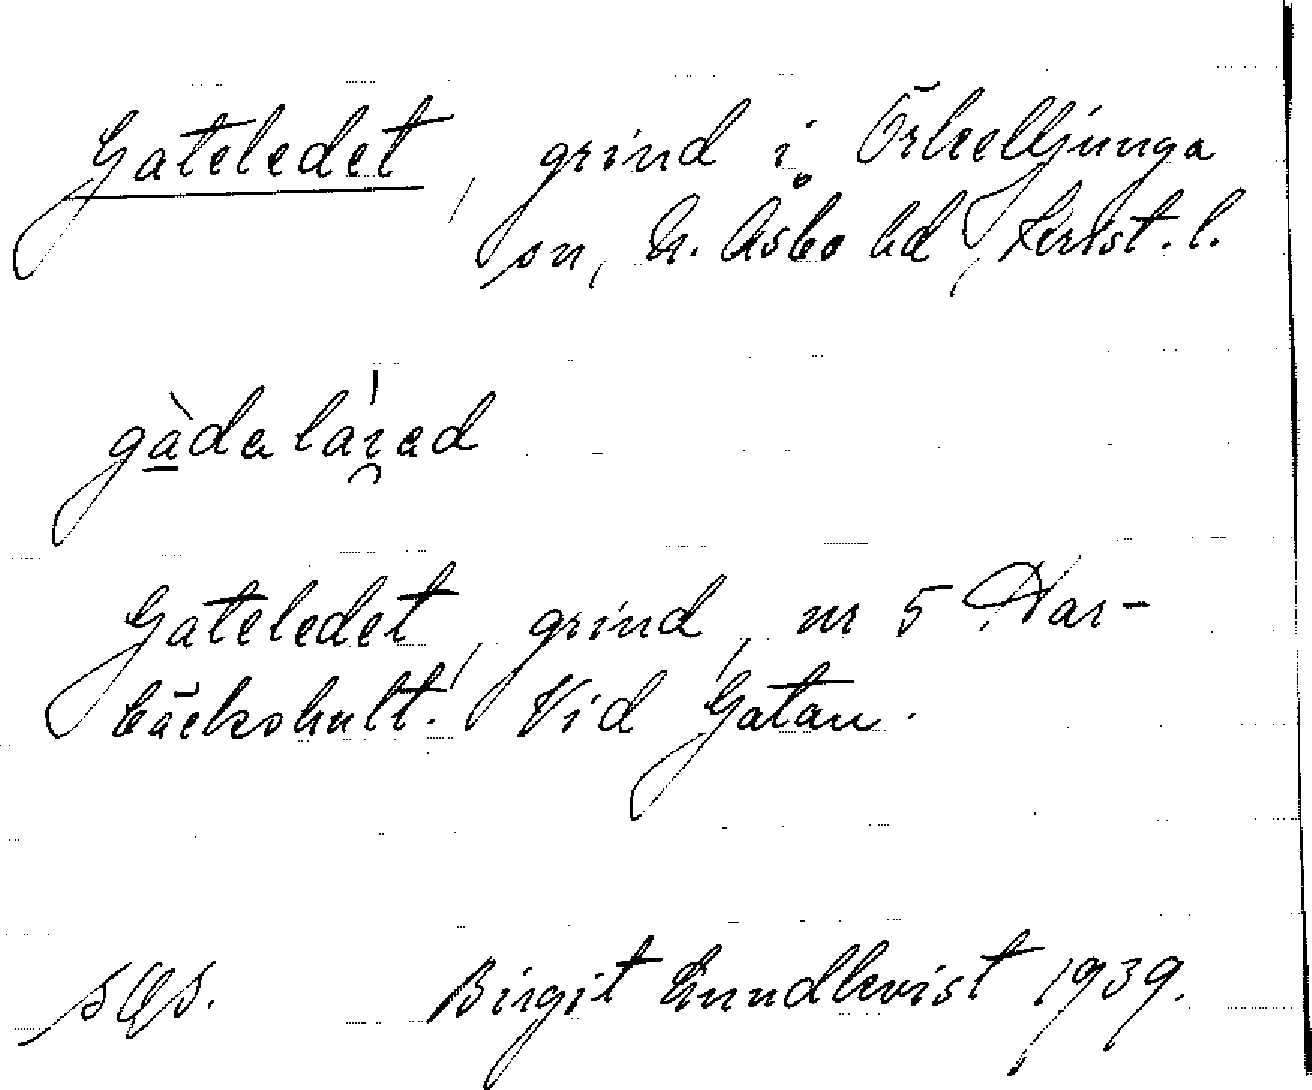 Gateledet, grind i Örkelljunga
sn, N. Åsbo hd, Krist. l.
gàdaláıad
Gateledet, grind, nr 5 Har-
bäckshult. Vid Gatan.
sgs. Birgit Lundkvist 1939.